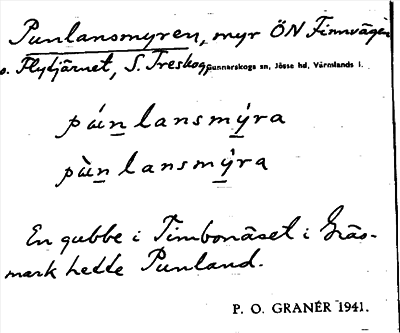 Punlansmyren, myr ÖN Finnvägen
o. Flytjärnet, S. Treskog, Gunnarskogs sn, Jösse hd, Värmlands l.
pún̲lansmý̲ra
pùn̲lansmŷ̲ra
En gubbe i Timbonäset i Gräs-
mark hette Punland.
P. O. GRANÉR 1941.